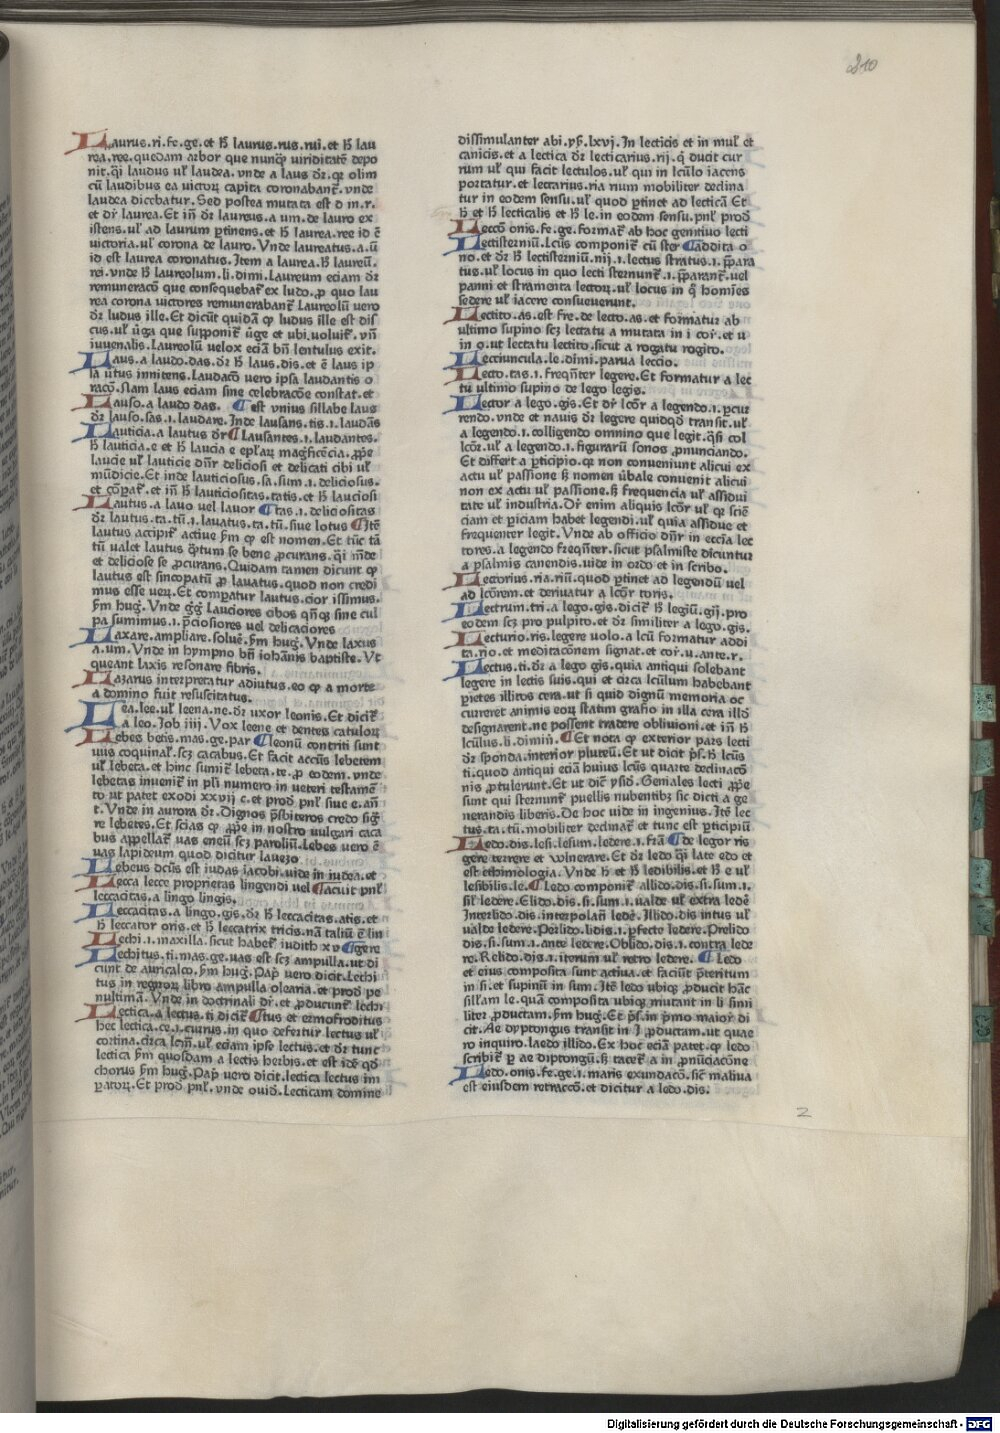 310
Laurus.ri.fe.ge.et hꝫ laurus.rus.rui.et hꝫ lau
rea.ree.quedam arbor que nunqꝫ viriditatē depo
nit.q̄i laudus ul̓ laudea. vnde a laus dr̄.qꝛ olim
cū laudibus ea victoꝝ capita coronabant̄. vnde
laudea dicebatur. Sed postea mutata est d in.r.
et dr̄ laurea. Et iñ dr̄ laureus.a um.de lauro ex
istens.ul̓ ad laurum ꝑtinens.et hꝫ laurea.ree id ē
victoria.ul̓ corona de lauro. Vnde laureatus.a.ū
id est laurea coronatus. Item a laurea.hꝫ laureū.
rei.vnde hꝫ laureolum.li.dimi. Laureum eciam dr̄
remuneracō que consequebat̄ ex ludo.ꝓ quo lau
rea corona victores remunerabant̄. Laureolū vero
dr̄ ludus ille. Et dicūt quidā ꝙ ludus ille est dis
cus.ul̓ ūga que supponit̄ ūge et ubi.uoluit̄. vñ
iuuenalis. Laureolū velox eciā bñ lentulus exit.
Laus.a laudo.das.dr̄ hꝫ laus.dis.et ē laus ip
la ūtus innitens. Laudacō vero ipsa laudantis o
racō. Nam laus eciam sine celebracōne constat.et
Lauso.a laudo das. ¶ est vnius sillabe laus
dr̄ lauso.sas.i.laudare. Inde lausans.tis.i.laudās
Lauticia.a lautus dr̄ ¶ Lausantes.i.laudantes.
hꝫ lauticia.e et hꝫ laucia e eplaꝝ mag̓ficēcia.ꝓpe
laucie ul̓ lauticie dn̄r deliciosi et delicati cibi ul̓
mūdicie. Et inde lauticiosus.sa.sum.i.deliciosus.
et cōpat̄.et iñ hꝫ lauticiositas.tatis.et hꝫ lauciosi
Lautus.a lavo vel lavor ¶ tas.i.deliciositas
dr̄ lautus.ta.tū.i.lavatus.ta.tū.siue lotus ¶ Itē
lautus accipit̄ active ẜm ꝙ est nomen. Et tūc tā
tū valet lautus q̄tum se bene ꝓcurans.q̄i mūde
et deliciose se ꝓcurans. Quidam tamen dicunt ꝙ
lautus est sincopatū ꝓ lavatus.quod non credi
mus esse veꝝ. Et comꝑatur lautus.cior issimus.
ẜm hug̓. Vnde g̓g̓ Lauciores cibos qn̄qꝫ sine cul
pa sumimus.i.p̄ciosiores vel delicaciores
Laxare.ampliare.solue̓.ẜm hug̓. Vnde laxus
a.um. Vnde in hympno bt̄i iohānis baptiste. Vt
queant laxis resonare fibris.
Lazarus interpretatur adiutus.eo ꝙ a morte
a domino fuit resuscitatus.
Lea.lee.ul̓ leena.ne.dr̄ uxor leonis. Et dicit̄
a leo. Job iiij. Vox leene et dentes catuloꝝ
Lebes betis.mas.ge.par ¶ leonū contriti sunt
vas coquinal̓.scꝫ cacabus. Et facit accūs lebetem
ul̓ lebeta.et hinc sumit̄ lebeta.te.ꝓ eodem. vnde
lebetas invenit̄ in pli numero in veteri testamē
to ut patet exodi xxvij c.et prod̓ pnl̓ siue e.an̄
t. Vnde in aurora dr̄. Dignos p̄sbiteros credo sig̓
re lebetes. Et scias ꝙ ꝓpe in nostro vulgari caca
bus appellat̄ vas eneū scꝫ paroliū. Lebes vero ē
vas lapideum quod dicitur lavezo.
Lebeus dcūs est iudas iacobi.vide in iudea.et
Lecca lecce proprietas lingendi vel ¶ acuit pnl̓
leccacitas.a lingo lingis.
Leccacitas.a lingo.gis.dr̄ hꝫ leccacitas.atis.et
hꝫ leccator oris.et hꝫ leccatrix tricis.nā taliū ē lin
Lechi.i.maxilla.sicut habet̄ iudith xv ¶ gere
Lechitus.ti.mas.ge.vas est scꝫ ampulla.ut di
cunt de auricalco.ẜm hug̓. Pap̓ vero dicit. Lechi
tus in regnoꝝ libro ampulla olearia.et prod̓ pe
nultimā. Vnde in doctrinali dr̄.et ꝓducunt̄ lechi
Lectica.a lectus.ti dicit̄ ¶ tus et ermofroditus
hec lectica.ce.i.currus.in quo defertur lectus ul̓
cortina.circa lcm̄.ul̓ eciam ipse lectus.et dr̄ tunc
lectica ẜm quosdam a lectis herbis.et est idē qd̓
chorus ẜm hug̓. Pap̓ vero dicit.lectica lectus im
ꝑatoꝝ. Et prod̓ pnl̓. vnde ouid̓. Lecticam domine
dissimulanter abi.yẜ.lxvi. In lecticis et in mul̓ et
canicis.et a lectica dr̄ lecticarius.rij.q̄ ducit cur
rum ul̓ qui facit lectulos.ul̓ qui in lc̄ulo iacens
portatur.et lectarius.ria rium mobiliter declina
tur in eodem sensu.ul̓ quod ꝑtinet ad lecticā Et
hꝫ et hꝫ lecticalis et hꝫ le.in eodem sensu.pnl̓ prod̓
Leccō onis.fe.ge.format̄ ab hoc genitivo lecti
Lectisterniū. Lcūs componit̄ cū ster ¶ addita o
no.et dr̄ hꝫ lectisterniū.nij.i.lectus stratus.i.p̄para
tus.ul̓ locus in quo lecti sternunt̄.i.p̄parant̄.vel
panni et stramenta lectoꝝ.ul̓ locus in q̄ homīes
sedere ul̓ iacere consueuerunt.
Lectito.as.est fre.de lecto.as.et formatur ab
ultimo supino scꝫ lectatu a mutata in i cor̄.et u
in o.ut lectatu lectito.sicut a rogatu rogito.
Lecciuncula.le.dimi.parva leccio.
Lecto.tas.i.freqn̄ter legere. Et formatur a lec
tu ultimo supino de lego legis.
Lector a lego.gis. Et dr̄ lcōr a legendo.i.ꝑcur
rendo.vnde et navis dr̄ legere quidqd̓ transit.ul̓
a legendo.i.colligendo omnino que legit.q̄si col
lcōr.ul̓ a legendo.i.figuraꝝ sonos ꝓnunciando.
Et differt a ꝑticipio.qꝛ non conveniunt alicui ex
actu ul̓ passione sꝫ nomen ūbale convenit alicui
non ex actu ul̓ passione.sꝫ frequencia ul̓ assidui
tate ul̓ industria. Dr̄ enim aliquis lcōr ul̓ qꝛ sciē
ciam et ꝑiciam habet legendi.ul̓ quia assidue et
frequenter legit. Vnde ab officio dn̄r in eccīa lec
tores.a legendo freqn̄ter.sicut psalmiste dicuntur
a psalmis canendis.vide in ordo et in scribo.
Lectorius.ria.riū.quod ꝑtinet ad legendū vel
ad lcōrem.et derivatur a lcōr toris.
Lectrum.tri.a lego.gis.dicit̄ hꝫ legiū.gij.pro
eodem scꝫ pro pulpito.et dr̄ similiter a lego.gis.
Lecturio.ris.legere volo.a lcū formatur addi
ta.rio.et meditacōnem signat.et cor̄.u.ante.r.
Lectus.ti.dr̄ a lego gis.quia antiqui solebant
legere in lectis suis.qui et circa lc̄ulum habebant
ꝑietes illitos cera.ut si quid dignū memoria oc
curreret animis eoꝝ statim grafio in illa cera illd̓
designarent.ne possent tradere oblivioni.et iñ hꝫ
lc̄ulus.li.dimiñ. ¶ Et nota ꝙ exterior pars lecti
dr̄ sponda.interior pluteū. Et ut dicit p̄s. hꝫ lcūs
ti.quod antiqui eciā huius lcūs quarte declinacō
nis ꝓtulerunt. Et ut dic̄ ysid̓. Geniales lecti ꝓpe
sunt qui sternunt̄ puellis nubentibꝫ sic dicti a ge
nerandis liberis. De hoc vide in ingenius. Itē lec
tus.ta.tū.mobiliter declinat̄ et tunc est ꝑticipiū
Ledo.dis.lesi.lesum.ledere.i.frā ¶ de legor ris
gere terrere et vulnerare. Et dr̄ ledo q̄i late edo et
est ethimologia. Vnde hꝫ et hꝫ ledibilis.et hꝫ e ul̓
lesibilis.le. ¶ Ledo componit̄ allido.dis.si.sum.i.
sil̓ ledere. Elido.dis.si.sum.i.valde ul̓ extra lede̓
Interlido.dis.interpolatī lede̓. Illido.dis intus ul̓
valde ledere. Perlido.lidis.i.ꝑfecte ledere. Prelido
dis.si.sum.i.ante ledere. Oblido.dis.i.contra lede
re. Relido.dis.i.iterum ul̓ retro ledere. ¶ Ledo
et eius composita sunt activa.et faciūt p̄teritum
in si.et supinū in sum. Itē ledo ubiqꝫ ꝓducit hāc
sill̓am le.quā composita ubiqꝫ mutant in li simi
liter ꝓductam.ẜm hug̓. Et p̄s.in p̄mo maior̄ di
cit. Ae dyptongus transit in I ꝓductam.ut quae
ro inquiro.laedo illido. Ex hoc eciā patet.ꝙ ledo
scribit̄ ꝑ ae diptongū.sꝫ tacet̄ a in ꝓnūciacōne
Ledo.onis.fe.ge.i.maris exundacō.sic̄ malina
est eiusdem retraccō.et dicitur a ledo.dis.
2
Digitalisierung gefördert durch die Deutsche Forschungsgemeinschaft - DFG